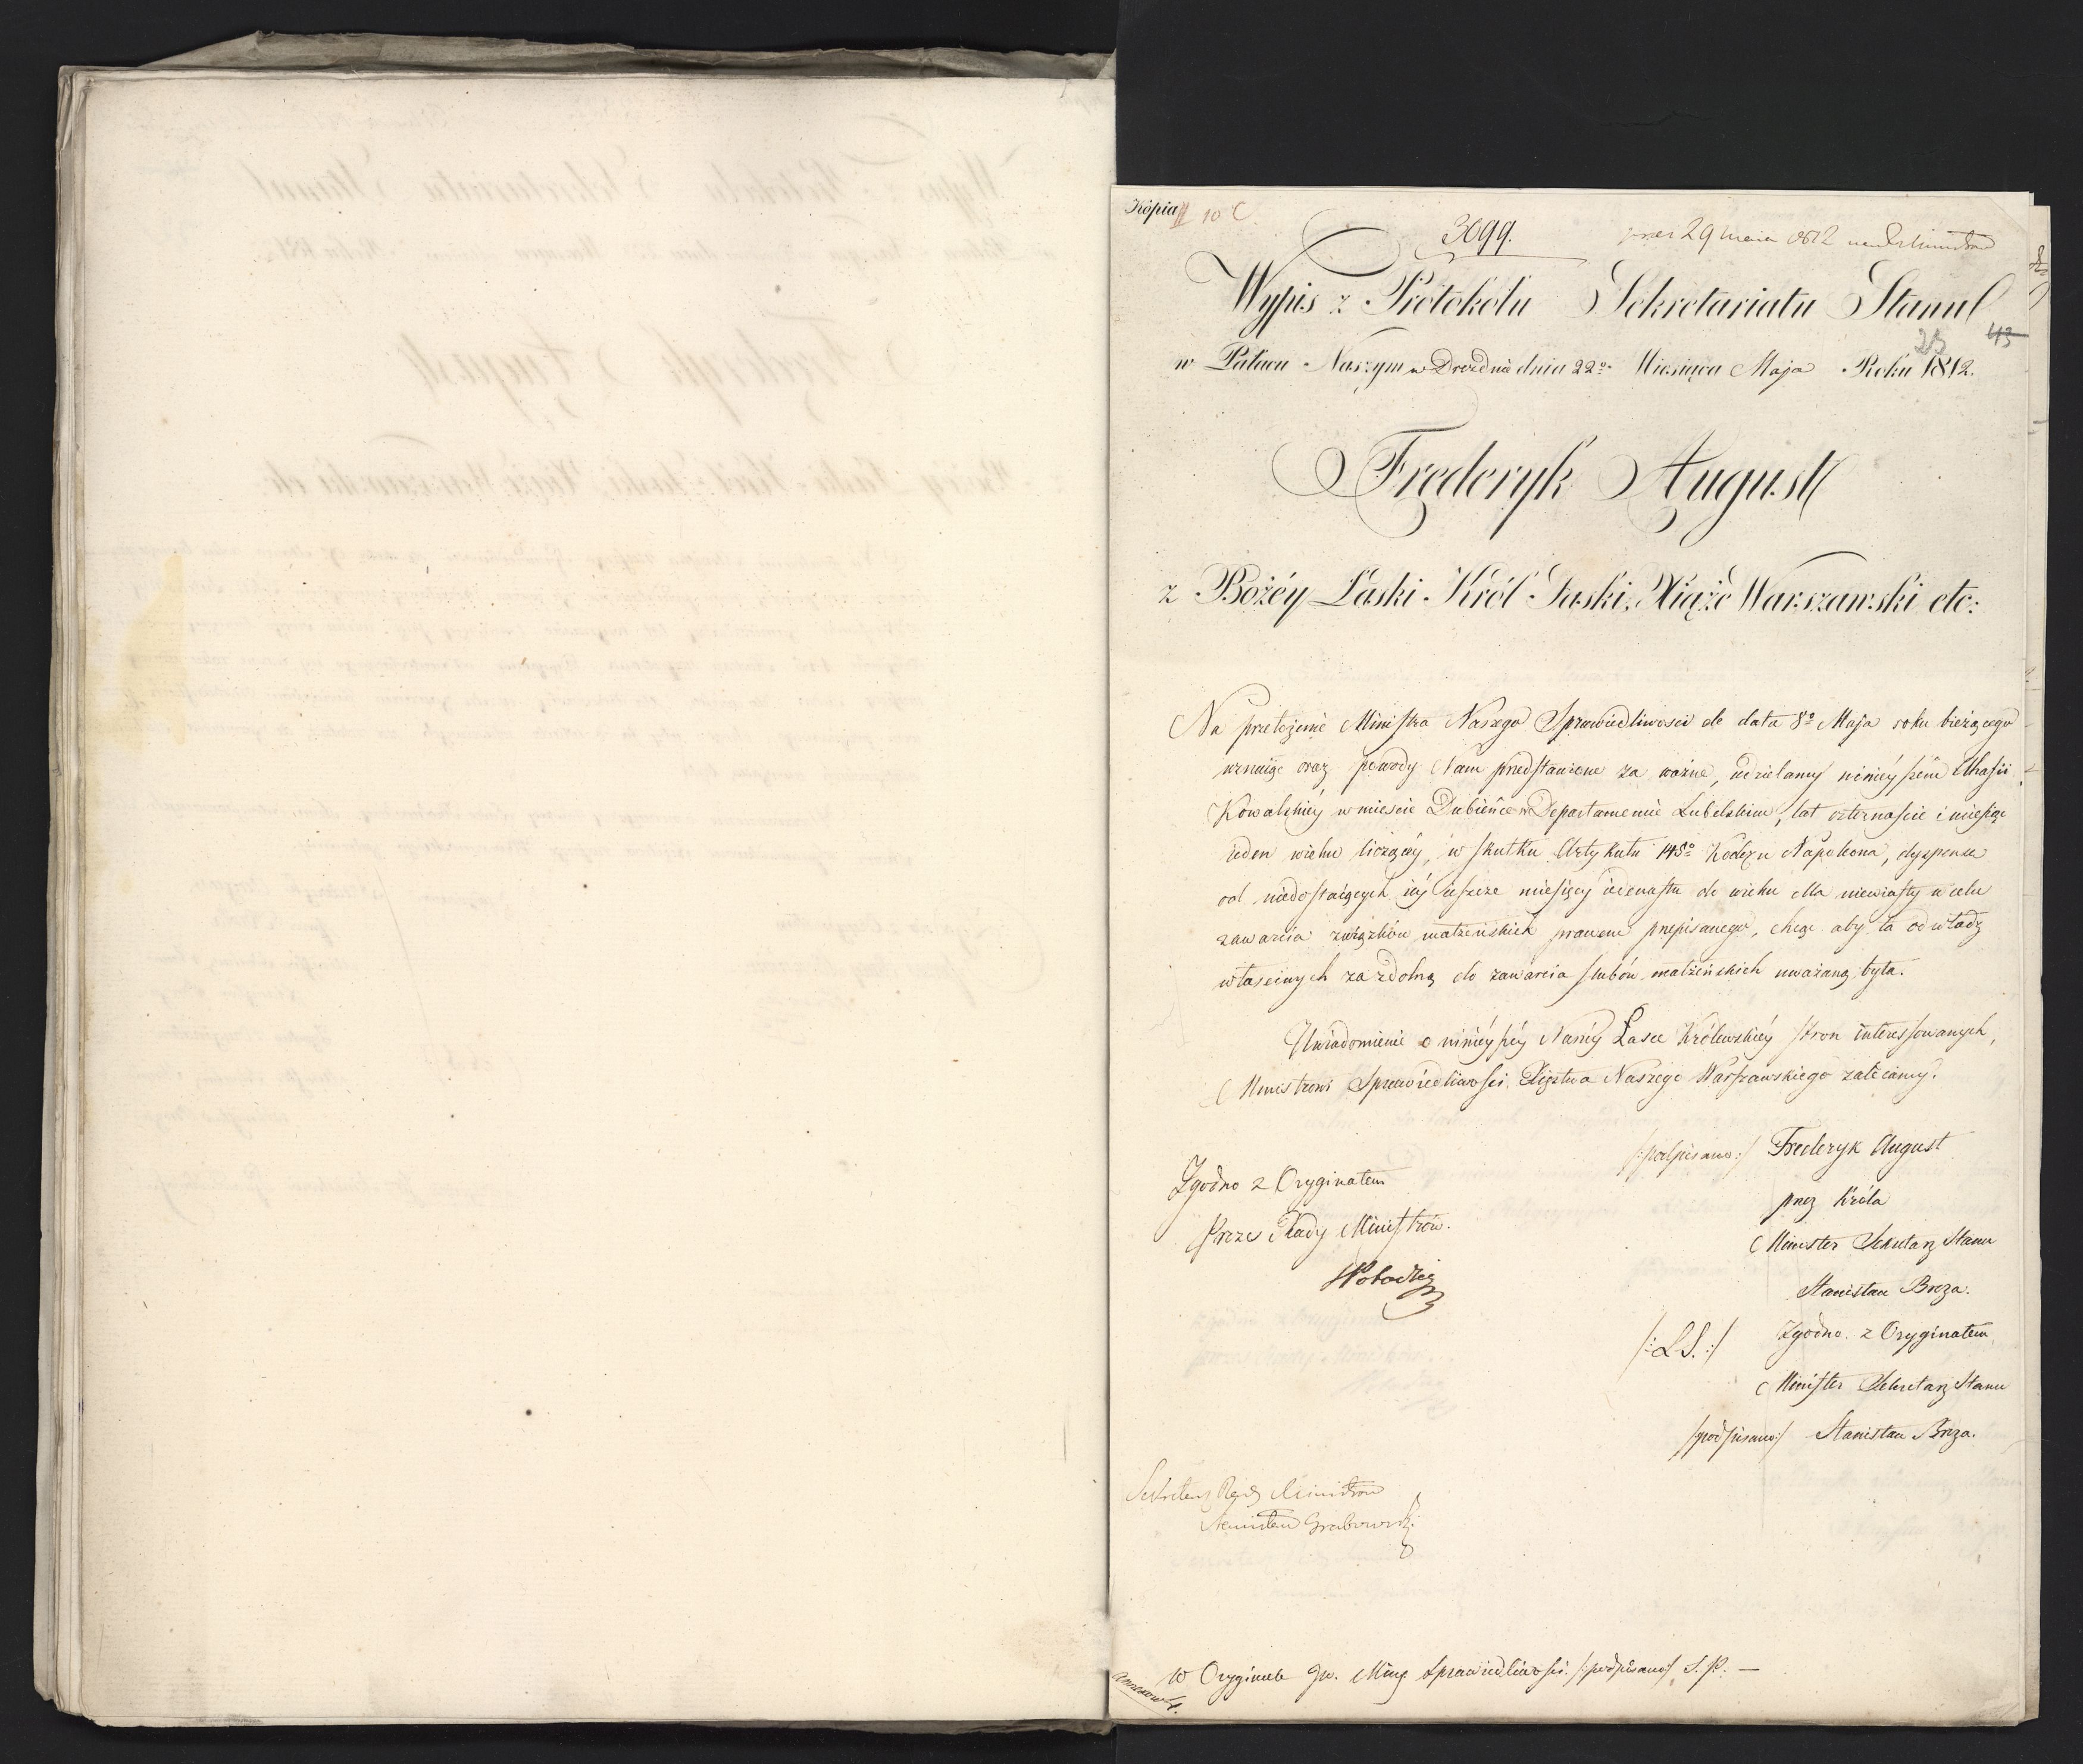 Kopia
10 C
3699.
29 Maia 1812
Wypis z Protokółu Sekretariatu Stanu
43
23
w Pałacu Naszym w Dreźdnie dnia 22º Miesiąca Maja Roku 1812.
Frederyk August
z Bożéy Łaski Król Saski, Xiąże Warszawski etc:
Na przełożenie Ministra Naszego Sprawiedliwości de dato 8º Maja roku bieżącego
uznając oraz powody Nam przedstawione za ważne, udzielamy ninieyszém
Kowalskiéy w mieście Dubience w Departamencie Lubelskim, lat czternaście i miesiąc
ieden wieku liczącéy, w skutku Artykułu 145º Kodexu Napoleona, dyspensę
od niedostaiących iéy ieszcze miesięcy iedenastu do wieku dla niewiasty w celu
zawarcia związków małżeńskich prawem przepisanego, chcąc aby ta od władz
właściwych za zdolną do zawarcia ślubów małżeńskich uważaną była.
Uwiadomienie o niniéyszéy Naszéy Łasce Królewskiéy stron interessowanych,
Ministrowi Sprawiedliwości Xięstwa Naszego Warszawskiego zalecamy.
/:podpisano:/ Frederyk August
Zgodno z Oryginałem
przez Króla
Prezes Rady Ministrów.
Minister Sekretarz Stanu
Stanisław Breza.
/:L.S.:/ Zgodno z Oryginałem
Minister Sekretarz Stanu
/podpisano/ Stanisław Breza.
Sekretarz Rady Ministrów
Stanisław Grabowski
W Oryginale Gr. Minr Sprawiedliwości /:podpisano/ S.P. —